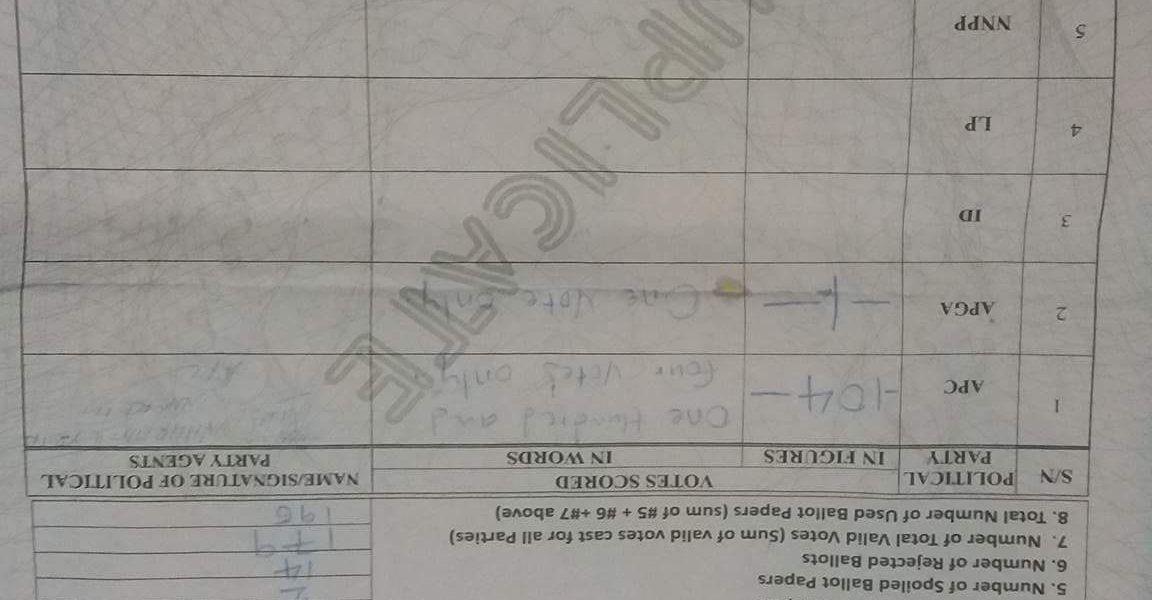 5. Number of Spoiled Ballot Papers 2
6. Number of Rejected Ballots 14
7. Number of Total Valid Votes (Sum of valid votes cast for all Parties) 179
8. Total Number of Used Ballot Papers (sum of #5 + #6 +#7 above) 195
S/N POLITICAL PARTY VOTES SCORED NAME/SIGNATURE OF POLITICAL PARTY AGENTS
IN FIGURES IN WORDS
1 APC -104- One Hundred and
Four Votes only APC
2 APGA -1- One Vote Only
3 ID
4 LP
5 NNPP